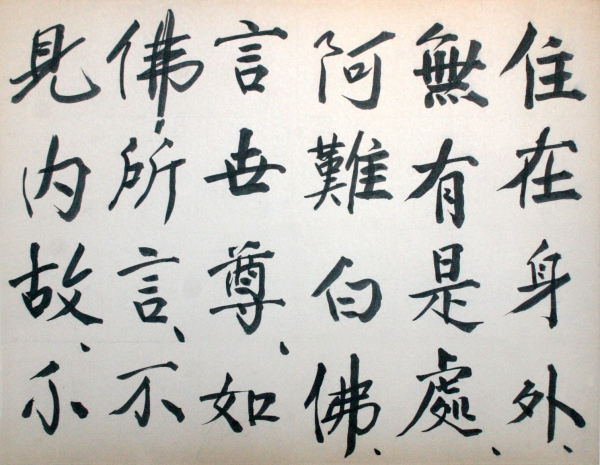 住在身外、
無有是處、
阿難白佛、
言世尊、如
佛、所言、不
見内故、不